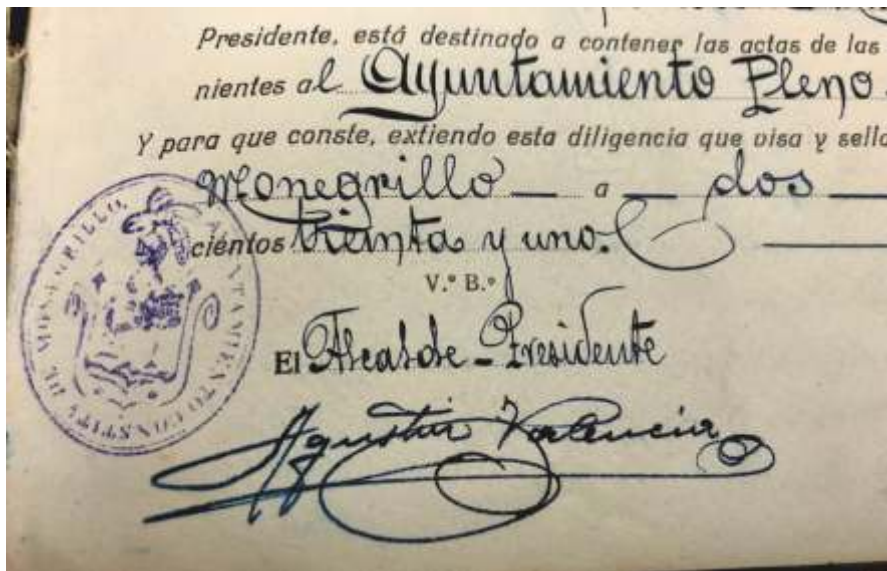 Presidente, está destinado a contener las actas de las
nientes al Ayuntamiento Pleno.
Y para que conste, extiendo esta diligencia que visa y sello
Monegrillo — a — dos —
cientos treinta y uno. —
V.° B.°
El Alcalde-Presidente
Agustín Valencia
AYUNTAMIENTO CONSTIT. DE MONEGRILLO.